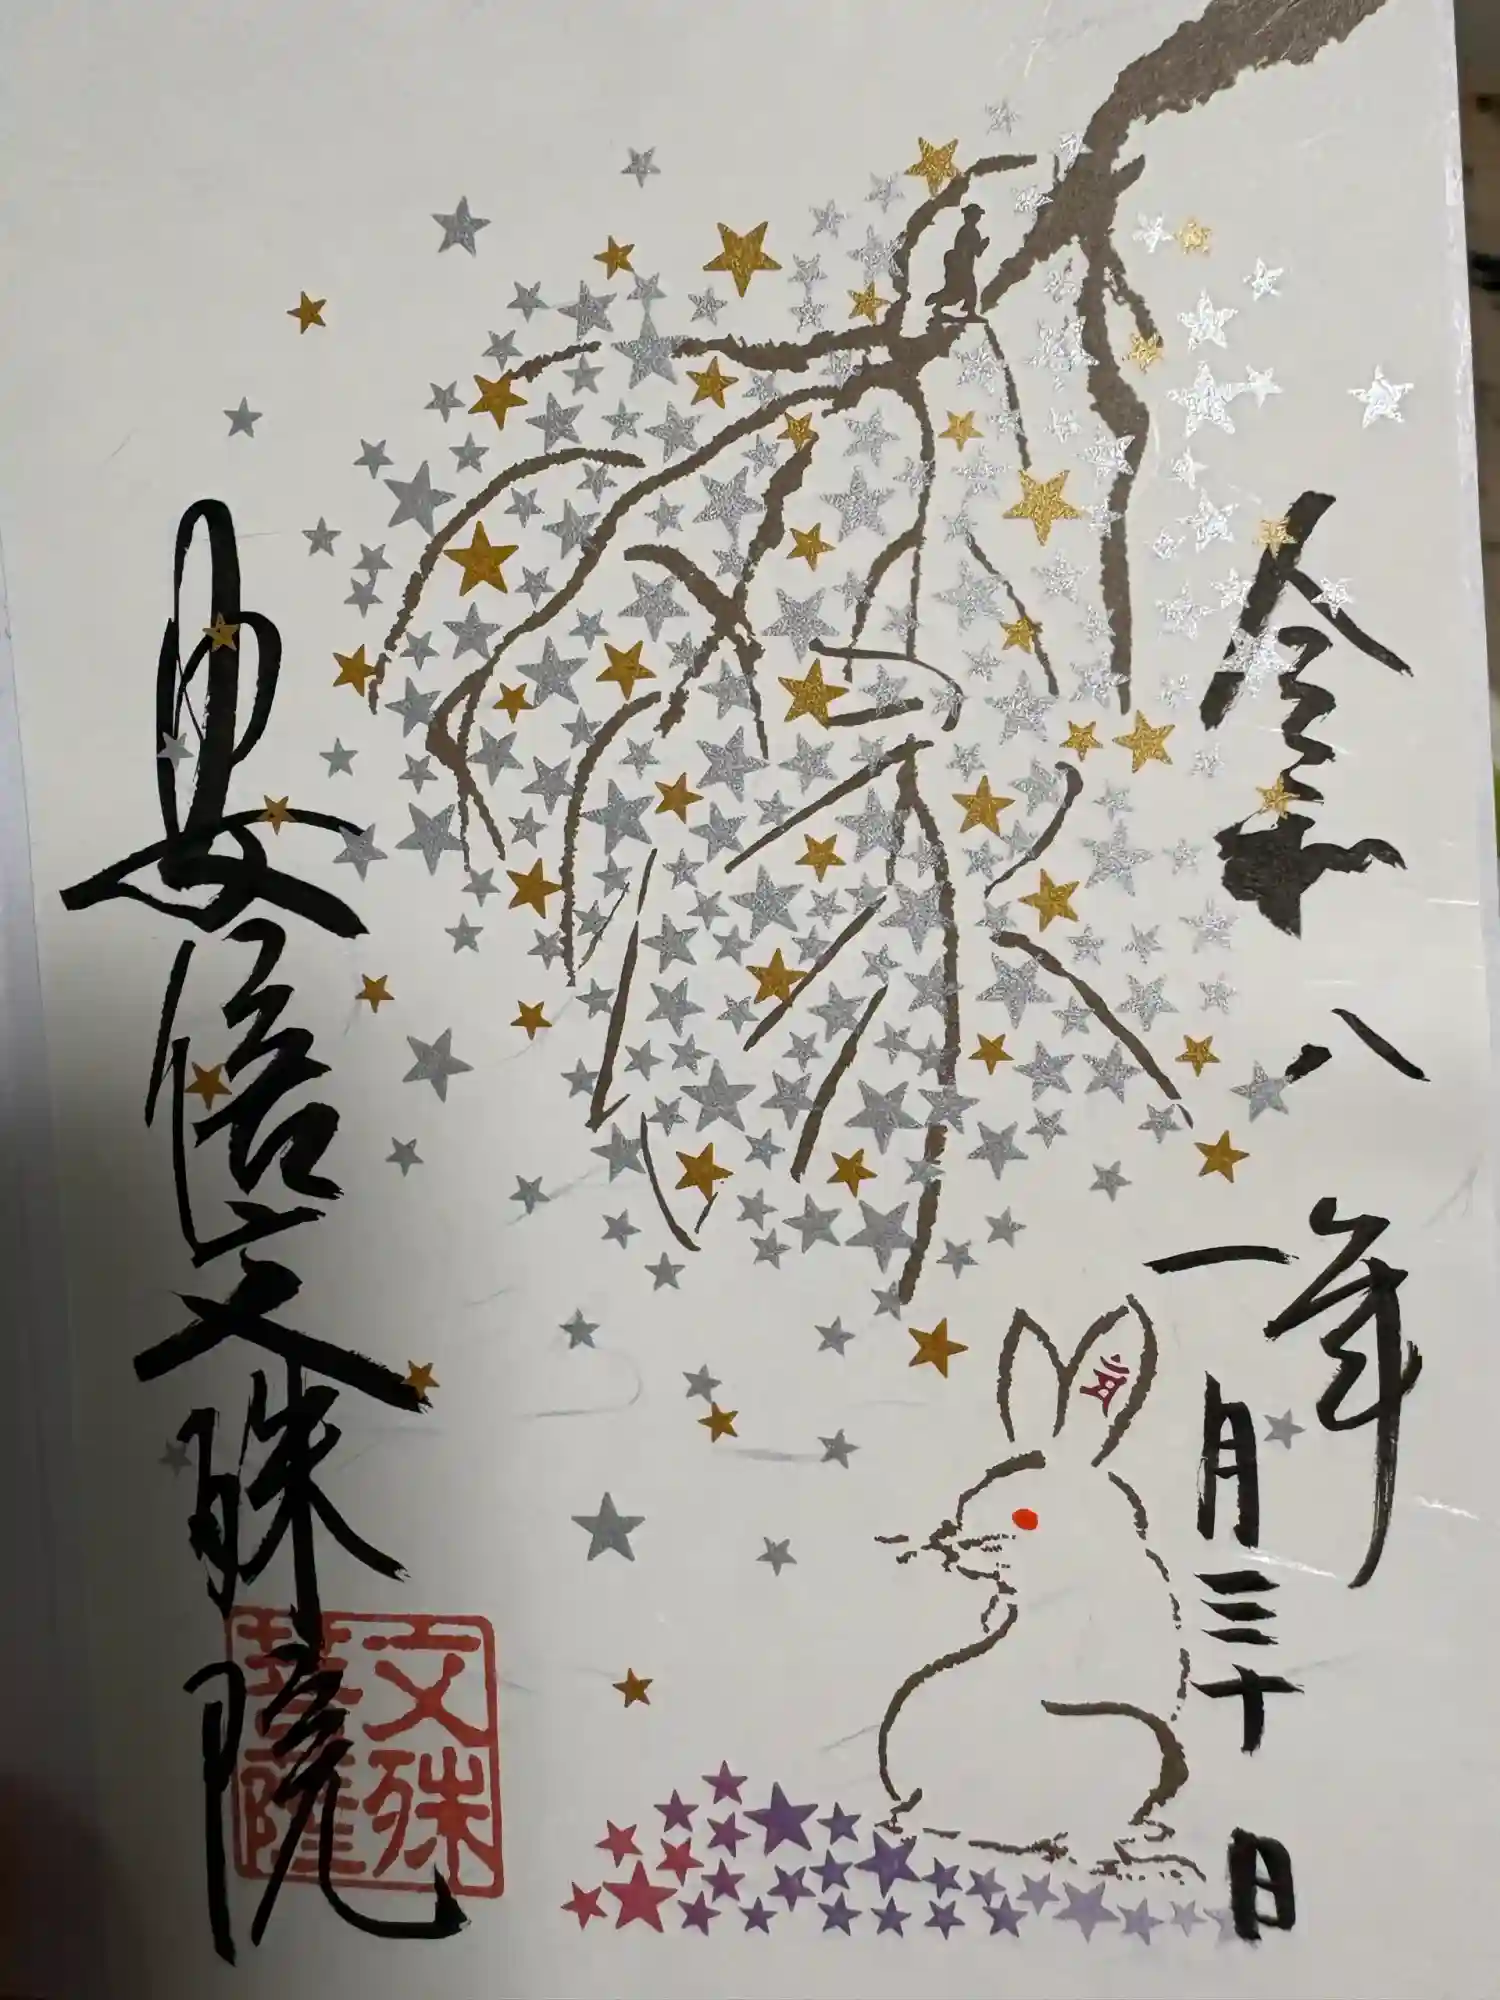 令和八年
一月三十日
安倍文殊院
文殊
菩薩